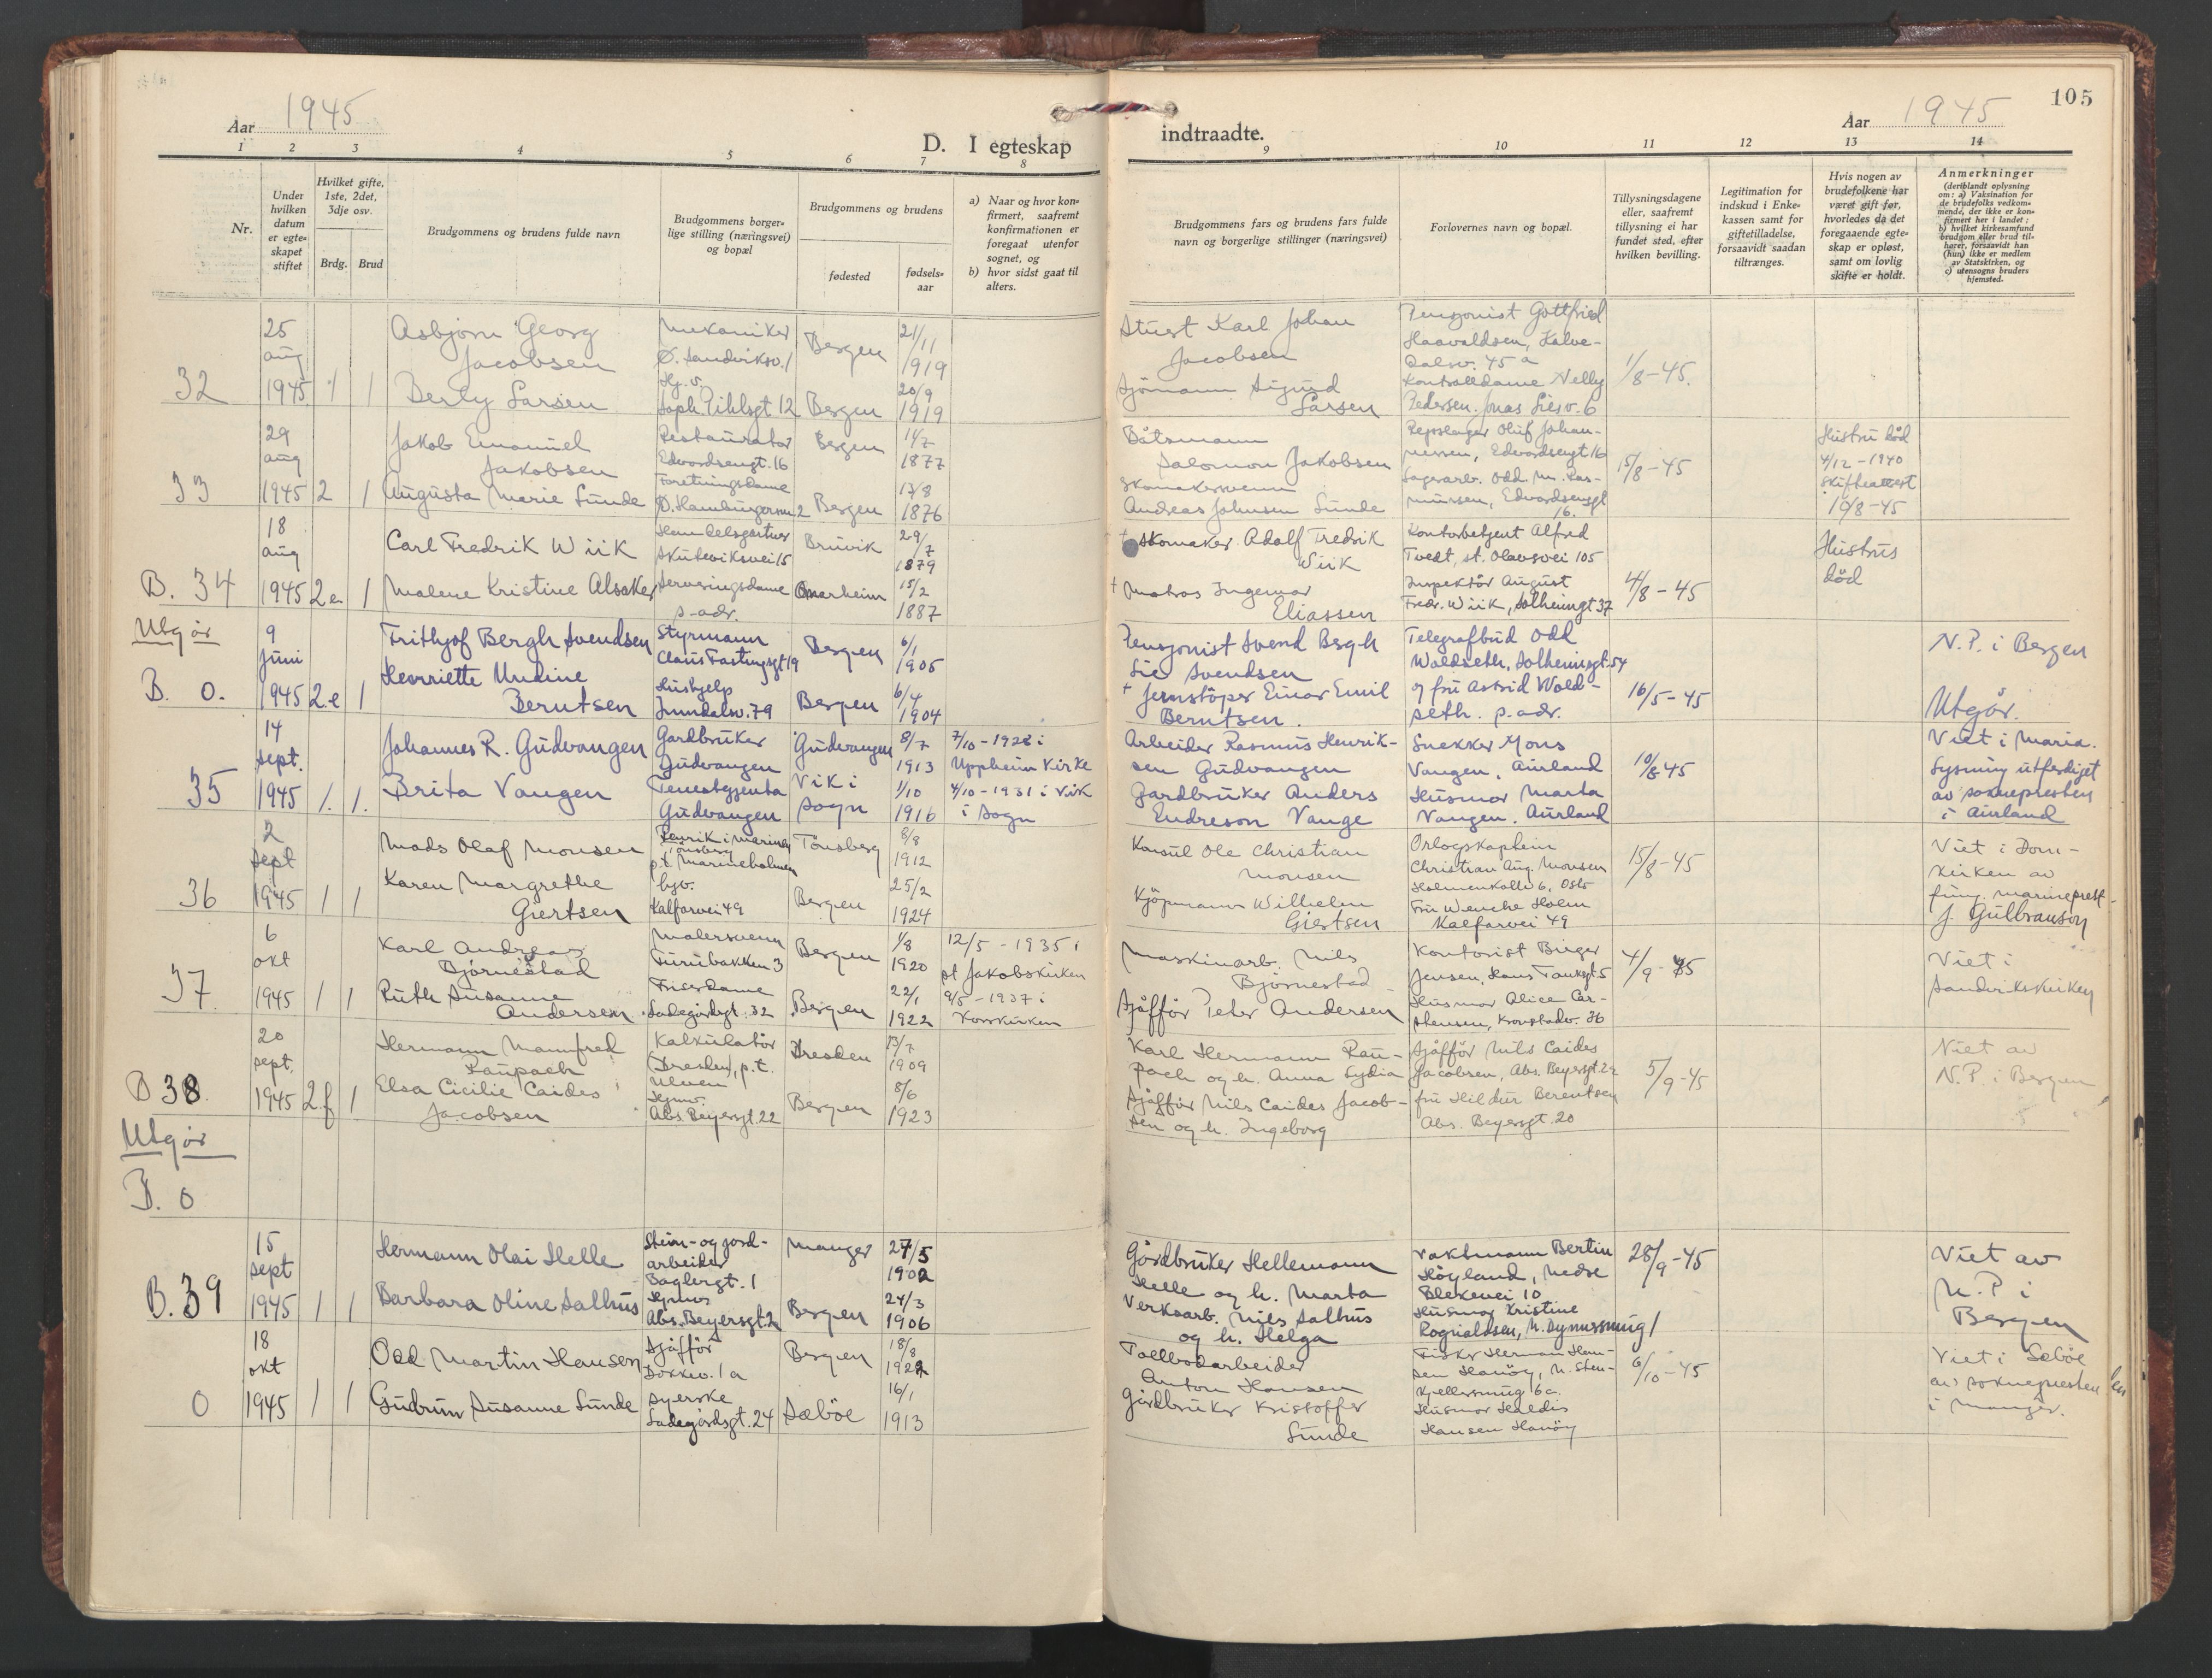 Aar 1945
D. I egteskap
1 2 3 4 5 6 7 8
Nr.
Under hvilken datum er egteskapet stiftet
Hvilket gifte, 1ste, 2det, 3dje osv.
Brdg. Brud
Brudgommens og brudens fulde navn
Brudgommens borgerlige stilling (næringsvei) og bopæl
Brudgommens og brudens
fødested
fødselsaar
a) Naar og hvor konfirmert, saafremt konfirmationen er foregaat utenfor sognet, og
b) hvor sidst gaat til alters.
32
25 aug 1945
1 1
Asbjørn Georg Jacobsen
Mekaniker
Ø. Sandviksv. 1
Bergen
21/11 1919
Berly Larsen
Hj. v.
Soph. Pihlsgt 12
Bergen
20/9 1919
33
29 aug 1945
2 1
Jakob Emanuel Jakobsen
Restauratør
Edvardsensgt. 16
Bergen
14/7 1877
Augusta Marie Sunde
Foretningsdame
Ø. Hamburgersm 2
Bergen
13/8 1876
B. 34
18 aug 1945
2e 1
Carl Fredrik Wiik
Handelsgartner
Skuteviksvei 15
Bruvik
29/7 1879
Malene Kristine Alsaker
Serveringsdame
s. adr.
Onarheim
15/2 1887
Utgår
B. 0.
9 juni 1945
2.e 1
Frithjof Bergh Svendsen
Styrmann
Claus Fastingsgt 19
Bergen
6/1 1905
Henriette Undine Berntsen
Hushjelp
Inndalsv. 79
Bergen
6/4 1904
35
14 sept. 1945
1. 1.
Johannes R. Gudvangen
Gardbruker
Gudvangen
Gudvangen
8/7 1913
7/10 - 1928 i Uppheim Kirke
Brita Vangen
Tenestgjenta
Gudvangen
Vik i Sogn
1/10 1916
4/10 - 1931 i Vik i Sogn
36
2 sept 1945
1 1
Mads Olaf Monsen
Fenrik i marinen
Tønsberg
p.t. Marineholmen
Tønsberg
8/8 1912
Karen Margrethe Giertsen
hjv.
Kalfarvei 49
Bergen
25/2 1924
37
6 okt 1945
1 1
Karl Andreas Bjørnestad
Malersvenn
Furubakken 3
Bergen
1/8 1920
12/5 - 1935 i st Jakobskirken
Ruth Susanne Andersen
Friserdame
Ladegårdsgt. 32
Bergen
22/1 1922
9/5 - 1937 i Korskirken
B 38.
20 sept. 1945
2.f 1
Hermann Mannfred Raupach
Kalkulatør
(Dresden), p.t.
Ulven
Dresden
13/7 1909
Elsa Cicilie Caides Jacobsen
Hjmv.
Abs. Beyersgt. 22
Bergen
8/6 1923
Utgår
B. 0
B. 39
15 sept 1945
1 1
Hermann Olai Helle
Stein- og jordarbeider
Baglergt. 1
Manger
27/5 1902
Barbara Oline Salhus
Hjmv
Abs. Beyersgt. 2
Bergen
24/3 1906
0
18 okt 1945
1 1
Odd Martin Hansen
Sjåffør
Dokkev. 1 a
Bergen
18/8 1922
Gudrun Susanne Sunde
Syerske
Ladegårdsgt. 24
Sæbøe
16/1 1913
105
indtraadte.
Aar 1945
9 10 11 12 13 14
Brudgommens fars og brudens fars fulde navn og borgerlige stillinger (næringsvei)
Forlovernes navn og bopæl.
Tillysningsdagene eller, saafremt tillysning ei har fundet sted, efter hvilken bevilling.
Legitimation for indskud i Enkekassen samt for giftetilladelse, forsaavidt saadan tiltrænges.
Hvis nogen av brudefolkene har været gift før, hvorledes da det foregaaende egteskap er opløst, samt om lovlig skifte er holdt.
Anmerkninger
(deriblandt oplysning om: a) Vaksination for de brudefolks vedkommende, der ikke er konfirmert her i landet; b) hvilket kirkesamfund brudgom eller brud tilhører, forsaavidt han (hun) ikke er medlem av Statskirken, og c) utensogns bruders hjemsted.
Stuert Karl Johan Jacobsen
Sjømann Sigurd Larsen
Pensjonist Gottfried
Haavaldsen, Kalvedalsv. 45 a
Kontrolldame Nelly
Pedersen. Jonas Liesv. 6
1/8-45.
Båtsmann
Salomon Jakobsen
Skomakersvenn
Andreas Johnsen Sunde
Repslager Oluf Johannessen, Edvardsensgt 16
Lagerarb. Odd M. Rasmussen, Edvardsensgt 16.
15/8-45
Hustru død
4/12 - 1940
Skifteattest
10/8-45
+ Skomaker Adolf Fredrik Wiik
+ Matros Ingemar Eliassen
Kontorbetjent Alfred
Tvedt, St. Olavsvei 105
Inspektør August
Fredr. Wiik, Solheimgt 37
4/8-45
Hustrus død
Pensjonist Svend Bergh
Lie Svendsen
+ Jernstøper Einar Emil
Berntsen.
Telegrafbud Odd
Waldseth, Solheimsgt. 54
og fru Astrid Waldseth. s. adr.
16/5-45
N.P. i Bergen
Utgår.
Arbeider Rasmus Henriksen Gudvangen
Gardbruker Anders
Endreson Vange
Snekker Mons
Vangen, Aurland
Husmor Marta
Vangen. Aurland
10/8-45
Viet i Maria.
Lysning utferdiget
av sokneprestens
i Aurland
Konsul Ole Christian Monsen
Kjøpmann Wilhelm Giertsen
Orlogskaptein
Christian Aug. Monsen
Holmenkollv 6, Oslo
Fru Wenche Holm
Kalfarvei 49
15/8-45
Viet i Domkirken av
fung. marineprest
J. Gulbranson
Maskinarb. Nils Bjørnestad
Sjåffør Peter Andersen
Kontorist Birger
Jensen, Hans Tanksgt 5
Husmor Alice Carstensen, Kronstadv. 36
4/9-45
Viet i
Sandvikskirken
Karl Hermann Raupach og h. Anna Lydia
Sjåffør Nils Caides Jacobsen og h. Ingeborg
Sjåffør Nils Caides
Jacobsen, Abs. Beyersgt. 22
fru Hildur Berentsen
Abs. Beyersgt. 20
5/9-45
Viet av
N.P. i Bergen
Gårdbruker Hellemann
Helle og h. Marta
Verksarb. Nils Salhus
og h. Helga
Vaktmann Bertin
Høyland, Nedre
Blekevei 10
Husmor Kristine
Rognaldsen, N. Dynnersmug 1
28/9-45
Viet av
N.P i
Bergen
Tollbodarbeider
Anton Hansen
Gårdbruker Kristoffer Sunde
Fisker Herman Hansen Hanøy, N. Stenkjellersmug 6a.
Husmor Haldis
Hansen Hanøy
6/10-45
Viet i Sæbøe
av soknepresten
i Manger.